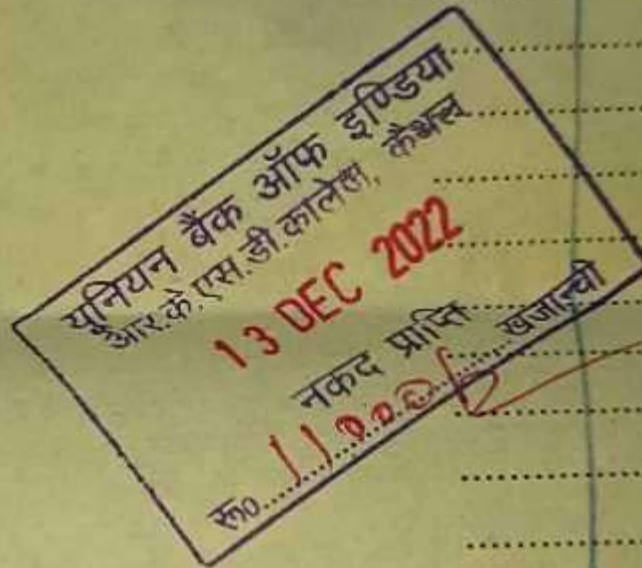 यूनियन बैंक ऑफ इण्डिया
आर.के.एस.डी.कालेज, कैथल
13 DEC 2022
नकद प्राप्ति
रू0.......... खजान्ची